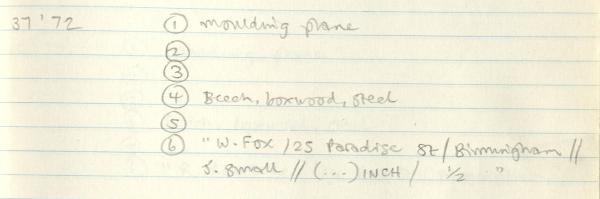 37'72 ① moulding plane
②
③
④ Beech, boxwood, steel
⑤
⑥ "W. Fox / 25 Paradise St / Birmingham //
J. Small // (...) INCH / 1/2 "